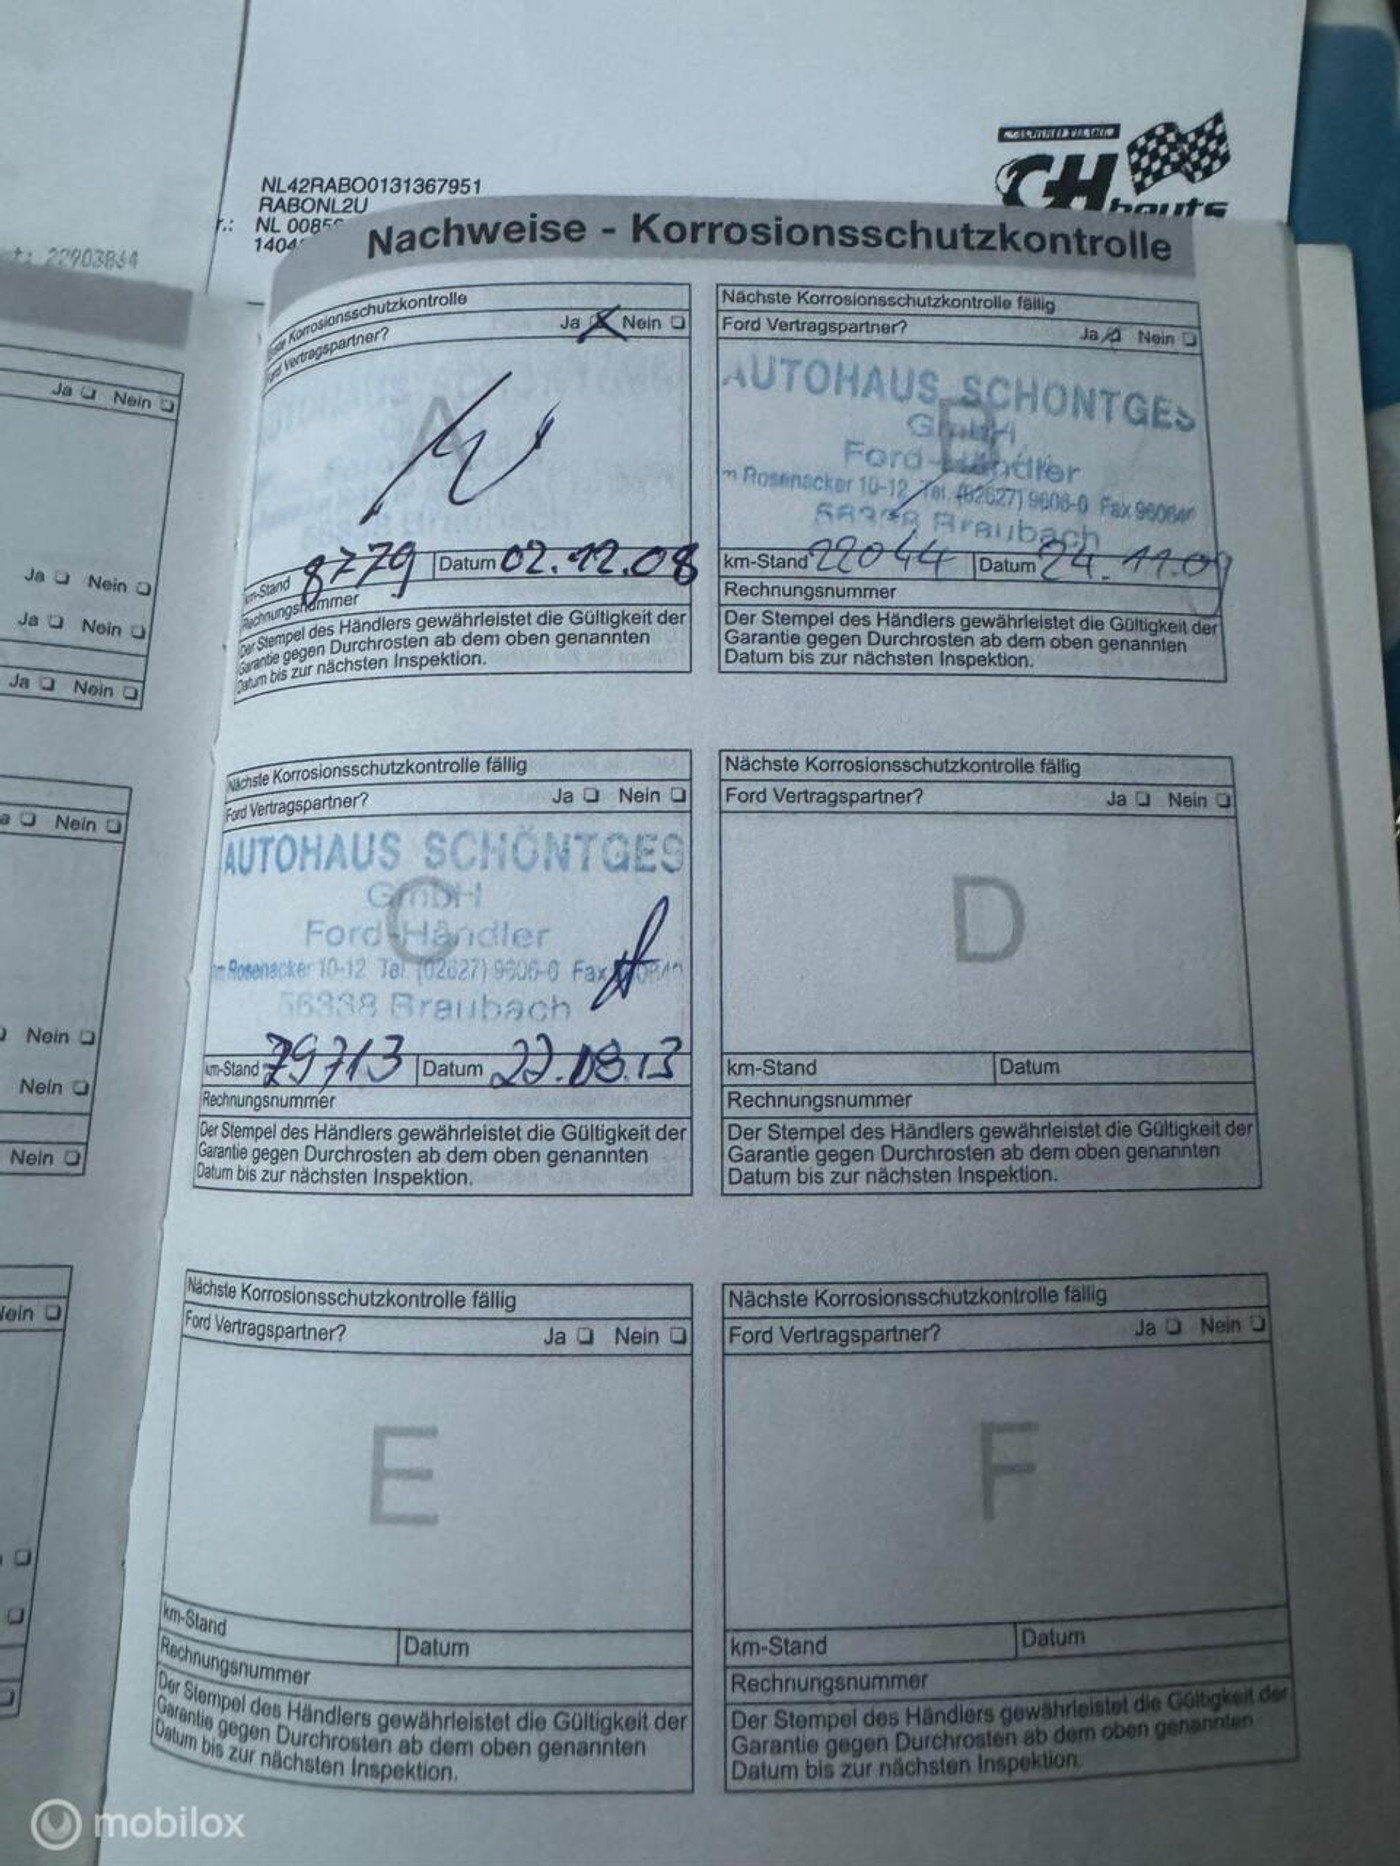 NL42RABO0131367951
RABONL2U
CH
Nachweise - Korrosionsschutzkontrolle
Korrosionsschutzkontrolle
Vertragspartner?
Ja Nein
8779 Datum 02.12.08
km-Stand
Rechnungsnummer
Der Stempel des Händlers gewährleistet die Gültigkeit der
Garantie gegen Durchrosten ab dem oben genannten
Datum bis zur nächsten Inspektion.
Nächste Korrosionsschutzkontrolle fällig
Ford Vertragspartner?
Ja Nein
AUTOHAUS SCHÖNTGES
GmbH
Ford-Händler
Rosenacker 10-12 Tel. (02627) 9606-0 Fax
56338 Braubach
km-Stand 22044 Datum 24.11.09
Rechnungsnummer
Der Stempel des Händlers gewährleistet die Gültigkeit der
Garantie gegen Durchrosten ab dem oben genannten
Datum bis zur nächsten Inspektion.
Nächste Korrosionsschutzkontrolle fällig
Ford Vertragspartner? Ja Nein
AUTOHAUS SCHÖNTGES
C
GmbH
Ford-Händler
Rosenacker 10-12 Tel. (02627) 9606-0 Fax
56338 Braubach
km-Stand 79713 Datum 22.08.13
Rechnungsnummer
Der Stempel des Händlers gewährleistet die Gültigkeit der
Garantie gegen Durchrosten ab dem oben genannten
Datum bis zur nächsten Inspektion.
Nächste Korrosionsschutzkontrolle fällig
Ford Vertragspartner? Ja Nein
D
km-Stand Datum
Rechnungsnummer
Der Stempel des Händlers gewährleistet die Gültigkeit der
Garantie gegen Durchrosten ab dem oben genannten
Datum bis zur nächsten Inspektion.
Nächste Korrosionsschutzkontrolle fällig
Ford Vertragspartner? Ja Nein
E
km-Stand Datum
Rechnungsnummer
Der Stempel des Händlers gewährleistet die Gültigkeit der
Garantie gegen Durchrosten ab dem oben genannten
Datum bis zur nächsten Inspektion.
Nächste Korrosionsschutzkontrolle fällig
Ford Vertragspartner? Ja Nein
F
km-Stand Datum
Rechnungsnummer
Der Stempel des Händlers gewährleistet die Gültigkeit der
Garantie gegen Durchrosten ab dem oben genannten
Datum bis zur nächsten Inspektion.
Ja Nein
Ja Nein
Ja Nein
Ja Nein
Nein
Nein
Nein
Nein
mobilox